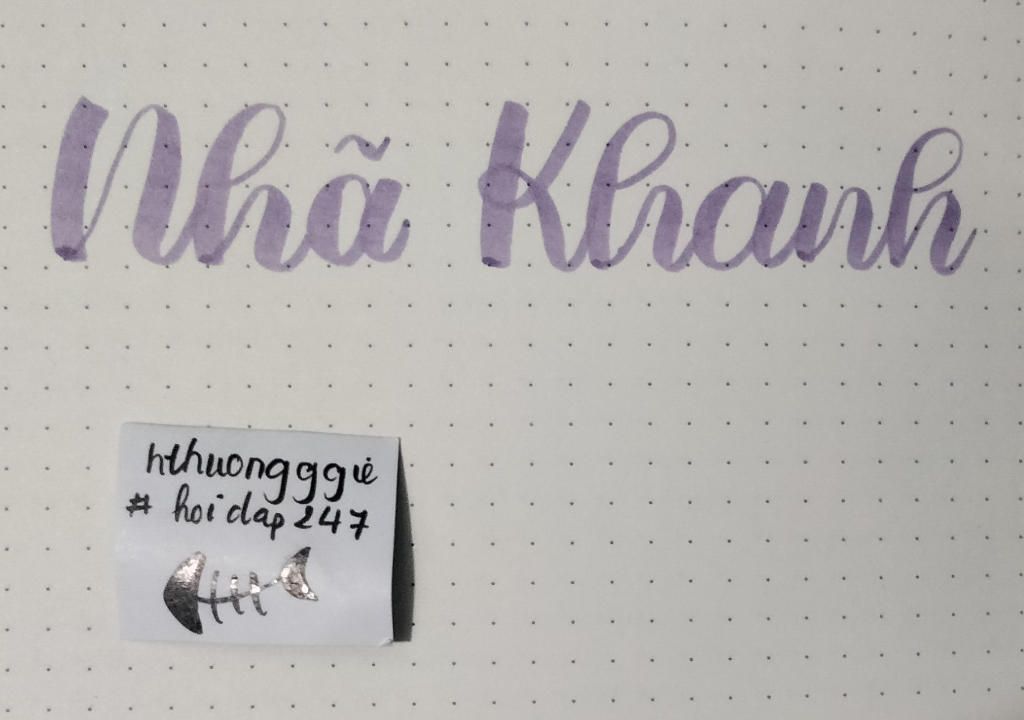 Nhã Khanh
hthuongggiè
# hoidap247